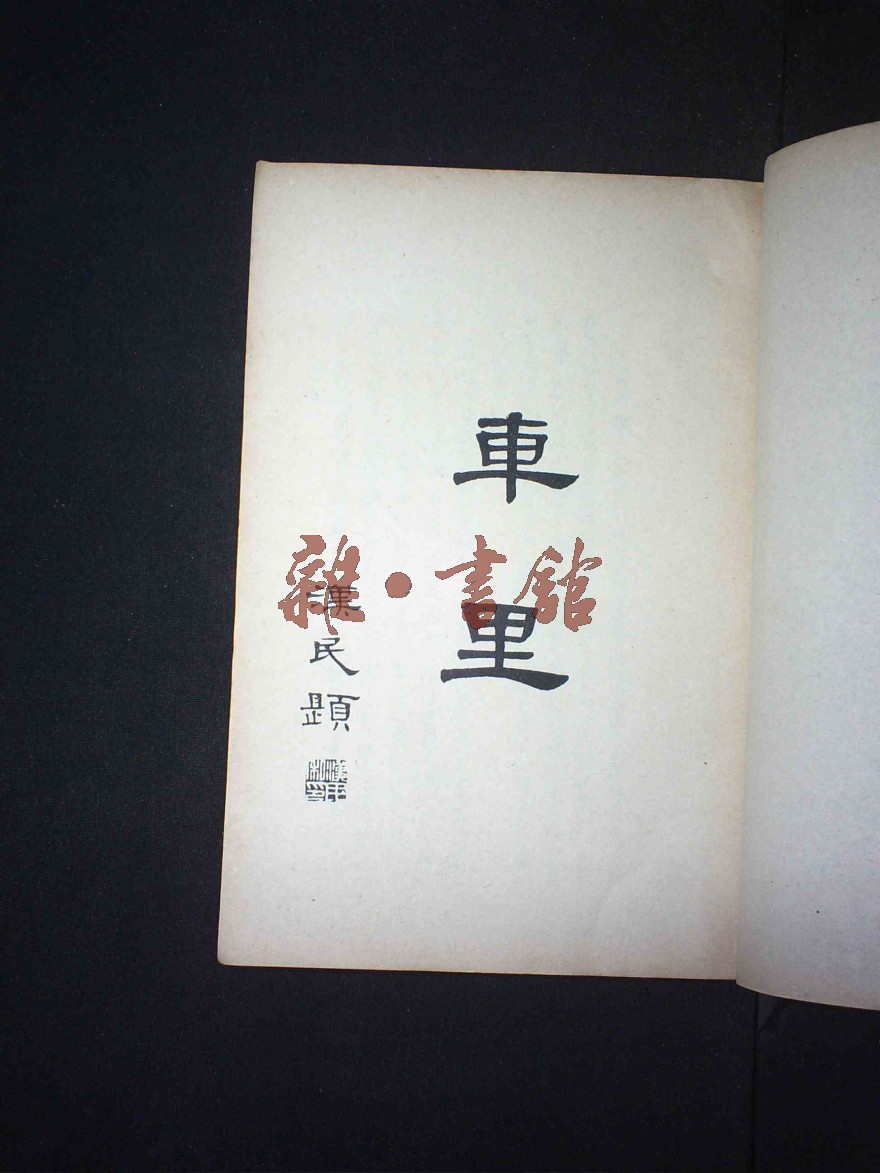 車里
漢民題
雜·書館